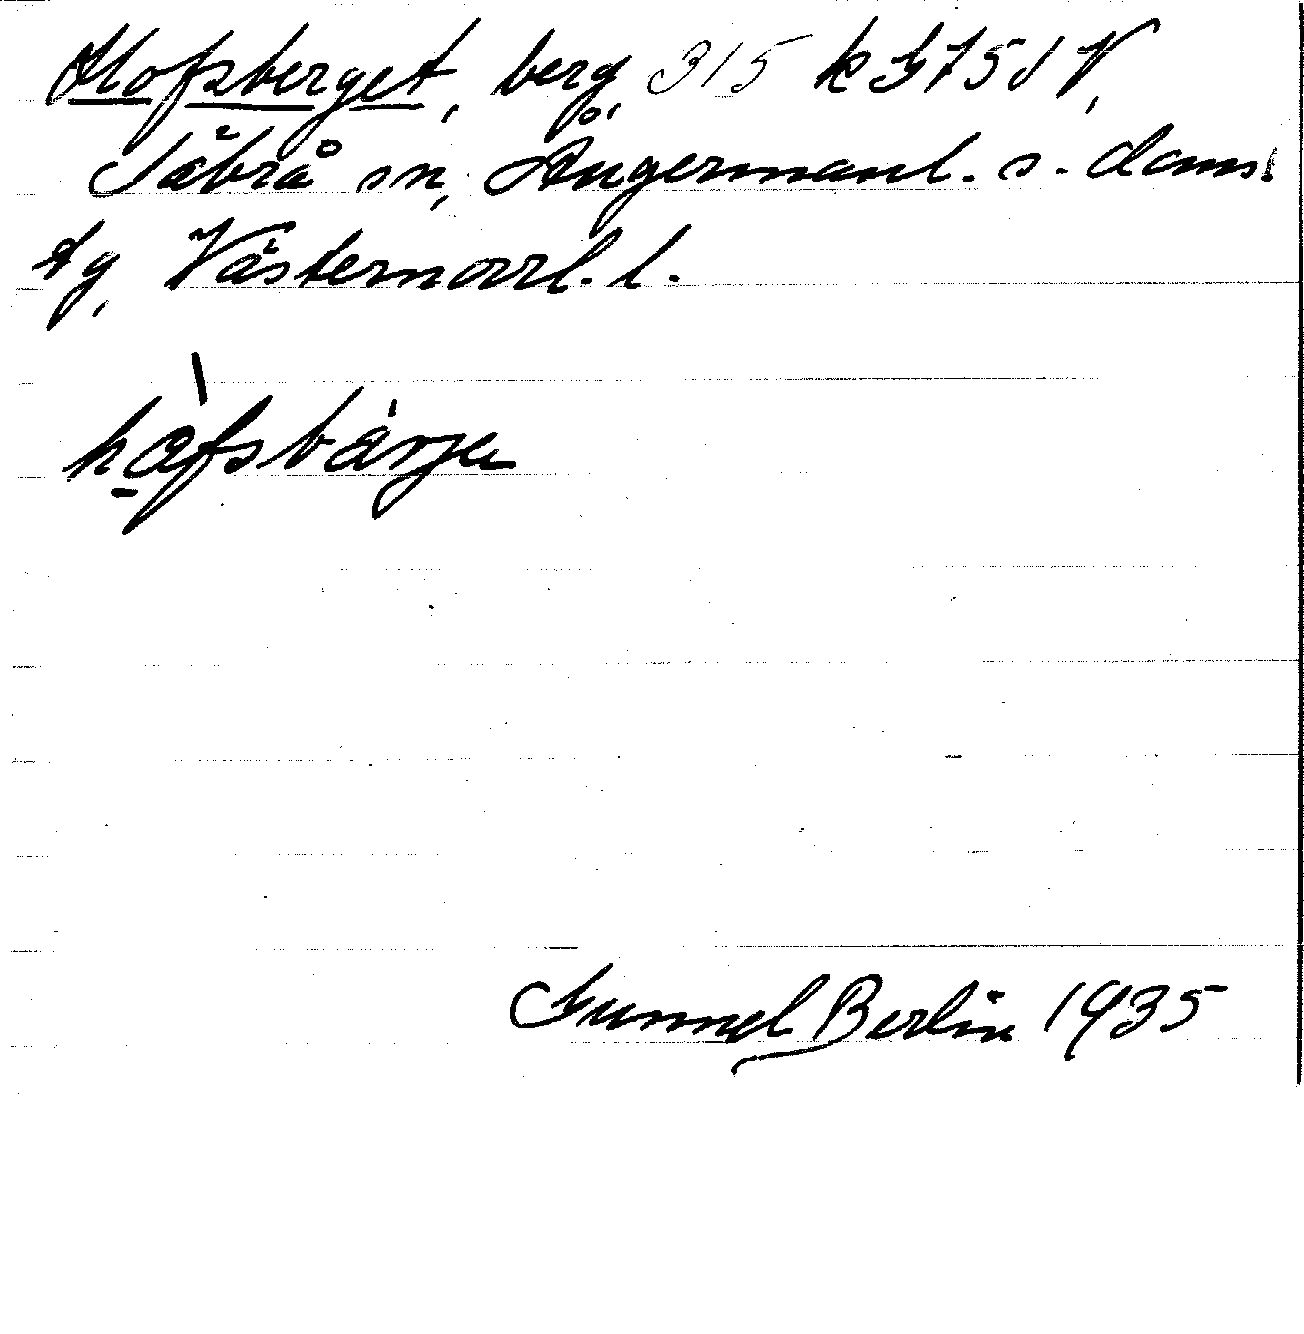 Hofsberget, berg, 315 k G 7 5 d V,
Säbrå sn, Ångermanl. s. doms.
g, Västernorrl. l.
hafsbärje
Gunnel Berlin 1935